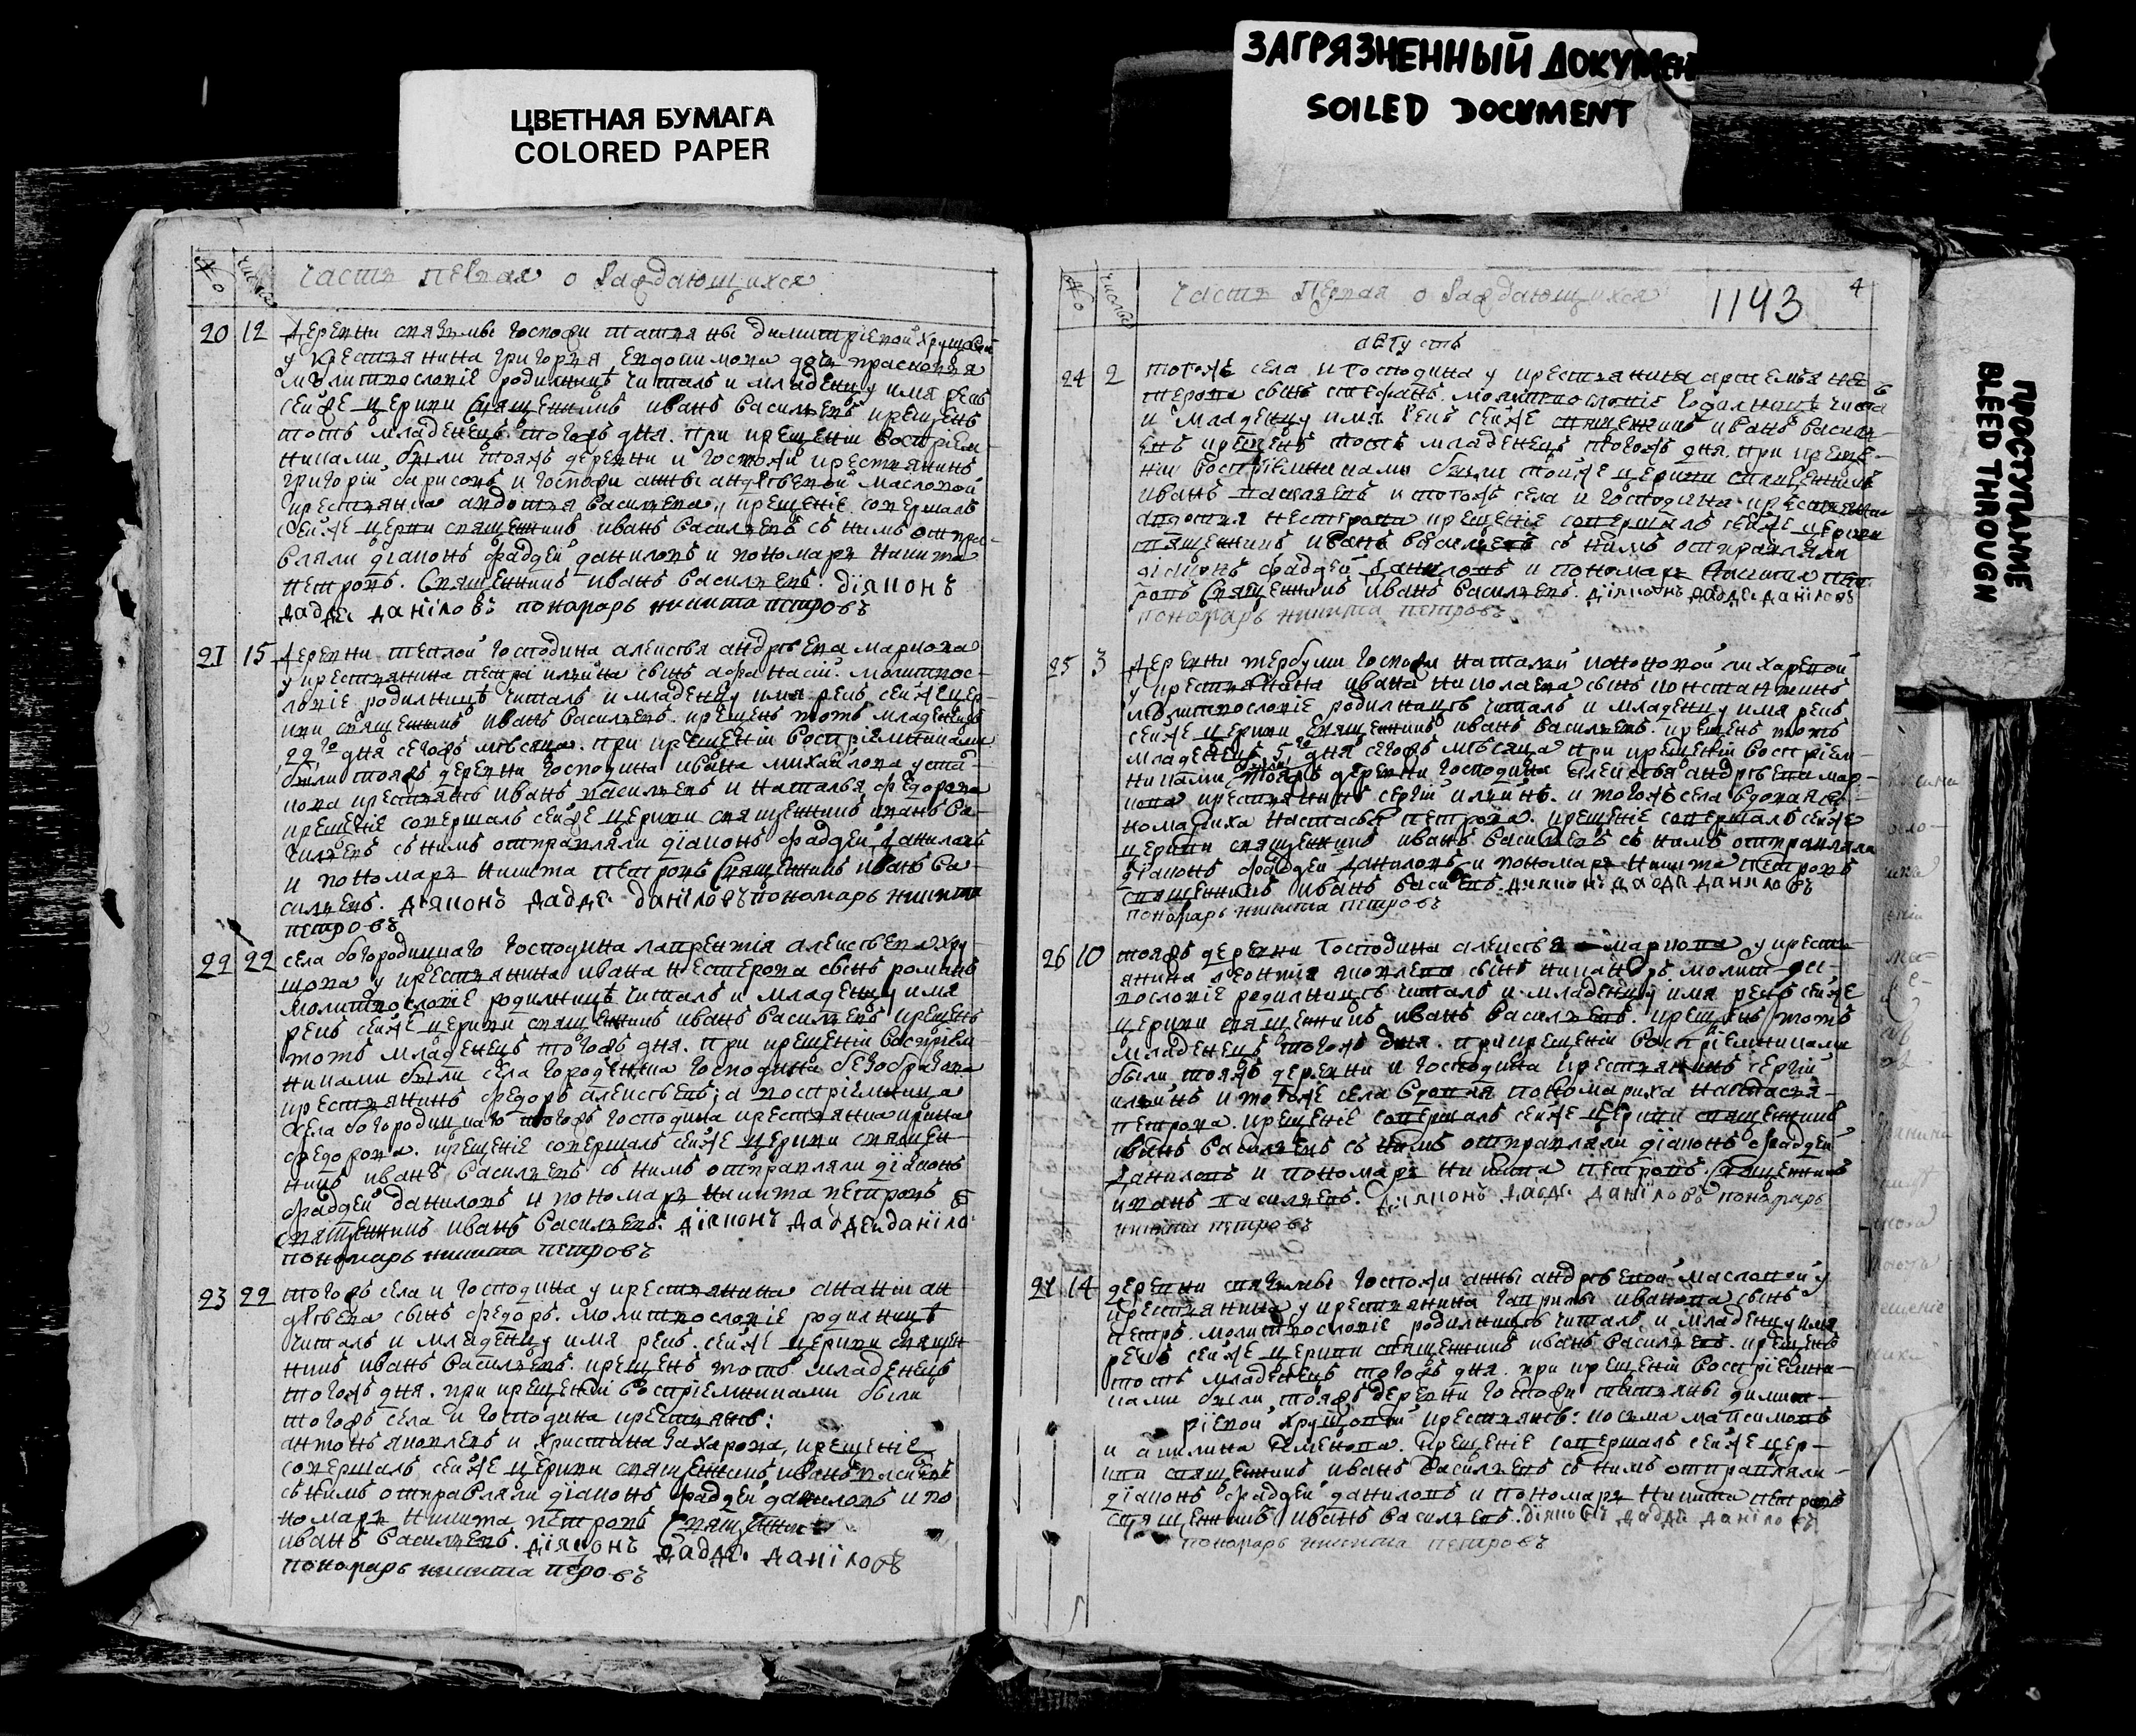 ЦВЕТНАЯ БУМАГА
COLORED PAPER
ЗАГРЯЗНЕННЫЙ ДОКУМЕН
SOILED DOCUMENT
ПРОСТУПАНИЕ
BLEED THROUGH
№ число
часть первая о раждающихся
20 12 деревни госпожи татьяны димитріевой хрущовой
у крестьянина григорья евдокимова дочь прасковья
молитвословіе родильницѣ читалъ и младенцу имя рекъ
сейже церкви священникъ иванъ васильевъ крещенъ
тотъ младенецъ тогожъ дня. при крещеніи воспріем
никами были тояжъ деревни и госпожи крестьянинъ
григорій барисовъ и госпожи анны андрѣевой масловой
крестьянка авдотья васильева, крещеніе совершалъ
сейже церкви священникъ иванъ васильевъ съ нимъ отпра-
вляли діаконъ фаддей даниловъ и пономарь никита
петровъ. Священникъ иванъ васильевъ. діяконъ
фадде даніловъ пономарь никита петровъ
21 15 деревни теплой господина алексѣя андрѣева маркова
у крестьянина петра ильина сынъ афанасій. молитвос-
ловіе родильницѣ читалъ и младенцу имя рекъ сейже цер-
кви священникъ иванъ васильевъ. крещенъ тотъ младенецъ
22го дня сегожъ мѣсяца. при крещеніи воспріемниками
были тояжъ деревни господина ивана михайлова
крестьянъ иванъ васильевъ и наталья федорова
крещеніе совершалъ сейже церкви священникъ иванъ ва-
сильевъ съ нимъ отправляли діаконъ фаддей даниловъ
и пономарь никита петровъ Священникъ иванъ ва-
сильевъ. діяконъ фадде даніловъ пономарь никита
петровъ
22 22 села богородицкаго господина лаврентія алексѣева хру-
щова у крестьянина ивана нестерова сынъ романъ
молитвословіе родильницѣ читалъ и младенцу имя
рекъ сейже церкви священникъ иванъ васильевъ крещенъ
тотъ младенецъ тогожъ дня. при крещеніи воспріем
никами были села городенка господина безобразова
крестьянинъ федоръ алексѣевъ; а воспріемница
села богородицкаго тогожъ господина крестьянка ирина
федорова. крещеніе совершалъ сейже церкви священ
никъ иванъ васильевъ съ нимъ отправляли діаконъ
фаддей даниловъ и пономарь никита петровъ
священникъ иванъ васильевъ. діяконъ фаддей даніло
пономарь никита петровъ
23 22 тогожъ села и господина у крестьянина ананіи ан
дрѣева сынъ федоръ. молитвословіе родильницѣ
читалъ и младенцу имя рекъ. сейже церкви священ
никъ иванъ васильевъ. крещенъ тотъ младенецъ
тогожъ дня. при крещеніи воспріемниками были
тогожъ села и господина крестьянъ:
антонъ яковлевъ и христина захарова, крещеніе
совершалъ сейже церкви священникъ иванъ васильевъ
съ нимъ отправляли діаконъ фаддей даниловъ и по
номарь никита петровъ Священникъ
иванъ васильевъ. діяконъ фадде даніловъ
пономарь никита перовъ
№ число
часть первая о раждающихся 1143 4
августъ
24 2 тогоже села и господина у крестьянина артемья нес
терова сынъ стефанъ. молитвословіе родильницѣ чита
и младенцу имя рекъ сейже священникъ иванъ василь
евъ крещенъ тотъ младенецъ тогожъ дня. при креще-
ніи воспріемниками были тойже церкви священникъ
иванъ васильевъ и тогожъ села и господина крестьянка
авдотья нестерова крещеніе совершалъ сейже церкви
священникъ иванъ васильевъ съ нимъ отправляли
діаконъ фаддей даниловъ и пономарь никита пет
ровъ Священникъ иванъ васильевъ. діяконъ фадде даніловъ
пономарь никита петровъ
25 3 деревни тербуши госпожи натальи
у крестьянина ивана николаева сынъ константинъ
молитвословіе родильницѣ читалъ и младенцу имя рекъ
сейже церкви священникъ иванъ васильевъ. крещенъ тотъ
младенецъ 5го дня сегожъ мѣсяца при крещеніи воспріем-
никами были тояжъ деревни господина алексѣя андрѣева мар-
кова крестьянинъ сергій ильинъ. и тогожъ села вдовая по-
номариха настасья петрова. крещеніе совершалъ сейже
церкви священникъ иванъ васильевъ съ нимъ отправляли
діаконъ фаддей даниловъ и пономарь никита петровъ
священникъ иванъ васильевъ. діяконъ фадде даніловъ
пономарь никита петровъ
26 10 тояжъ деревни господина алексѣя маркова у крестъ-
янина леонтія яковлева сынъ никаноръ. молит-
вословіе родильницѣ читалъ и младенцу имя рекъ сейже
церкви священникъ иванъ васильевъ. крещенъ тотъ
младенецъ тогожъ дня. при крещеніи воспріемниками
были тояжъ деревни и господина крестьянинъ сергій
ильинъ и тогоже села вдовая пономариха настасья
петрова. крещеніе совершалъ сейже церкви священникъ
иванъ васильевъ съ нимъ отправляли діаконъ фаддей
даниловъ и пономарь никита петровъ. священникъ
иванъ васильевъ. діяконъ фадде даніловъ пономарь
никита петровъ
27 14 деревни госпожи анны андрѣевой масловой у
крестьянина у крестьянина гаврилы иванова сынъ
петръ. молитвословіе родильницѣ читалъ и младенцу имя
рекъ сейже церкви священникъ иванъ васильевъ. крещенъ
тотъ младенецъ тогожъ дня. при крещеніи воспріемни-
ками были тояжъ деревни госпожи татьяны димит-
ріевой хрущовой крестьянъ: косма максимовъ
и акилина семенова. крещеніе совершалъ сейже цер-
кви священникъ иванъ васильевъ съ нимъ отправляли
діаконъ фаддей даниловъ и пономарь никита петровъ
священникъ иванъ васильевъ. діяконъ фадде даніловъ
пономарь никита петровъ